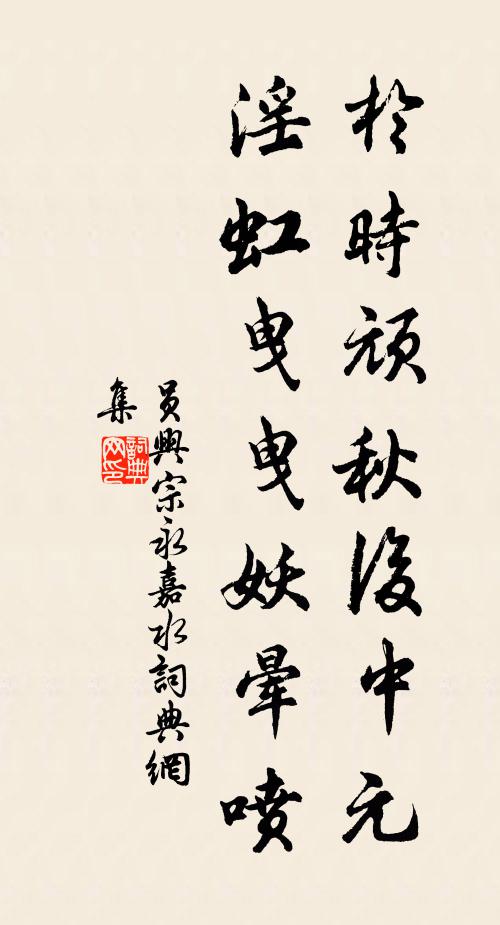 於時頑秋後中元
淫虹曳曳妖暈噴
員興宗永嘉水詞典網
集
詞典網印